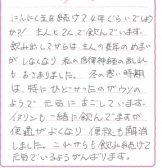 にんにく玉を続けて4年ぐらいでしょう
か?! 主人と2人で飲んでいます。
飲み出してからは、主人の長年のめまい
がしなくなり 私の自律神経の乱れ
も おさまりました。 冬の寒い時期
は、特に ひどかったのがウソの
ように 元気に すごしています。
イヌリンも一緒に飲んでますが
便通が よくなり 便秘も解消
しました。 これからも飲み続けて
元気でいるようがんばります。